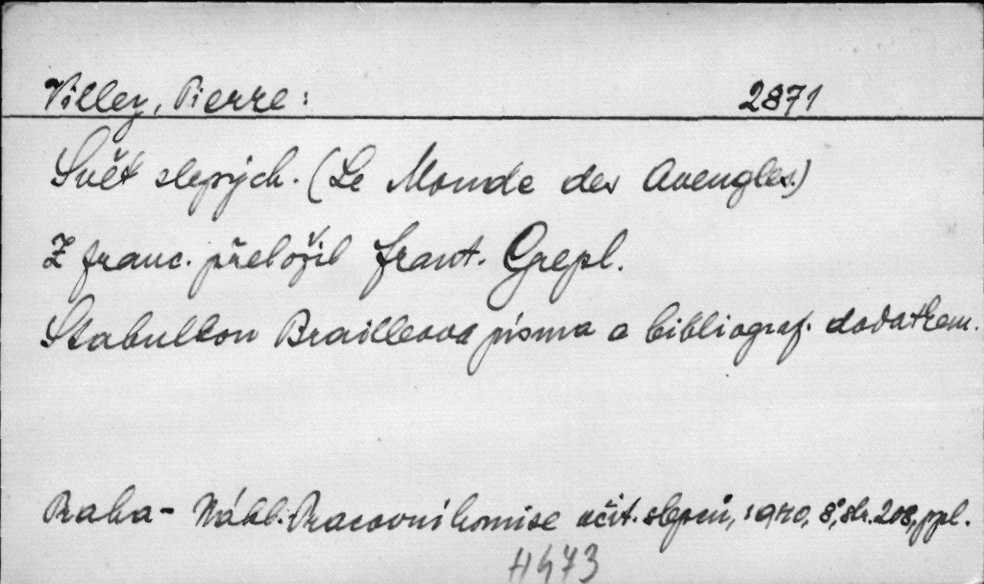 Villey, Pierre: 2871
Svět slepých. (Le Monde des Aveugles.)
Z franc. přeložil Frant. Grepl.
S tabulkou Brailleova písma a bibliograf. dodatkem.
Praha - Nákl. Pracovní komise učit. slepců, 1940, 8°, str. 208, ppl.
H473